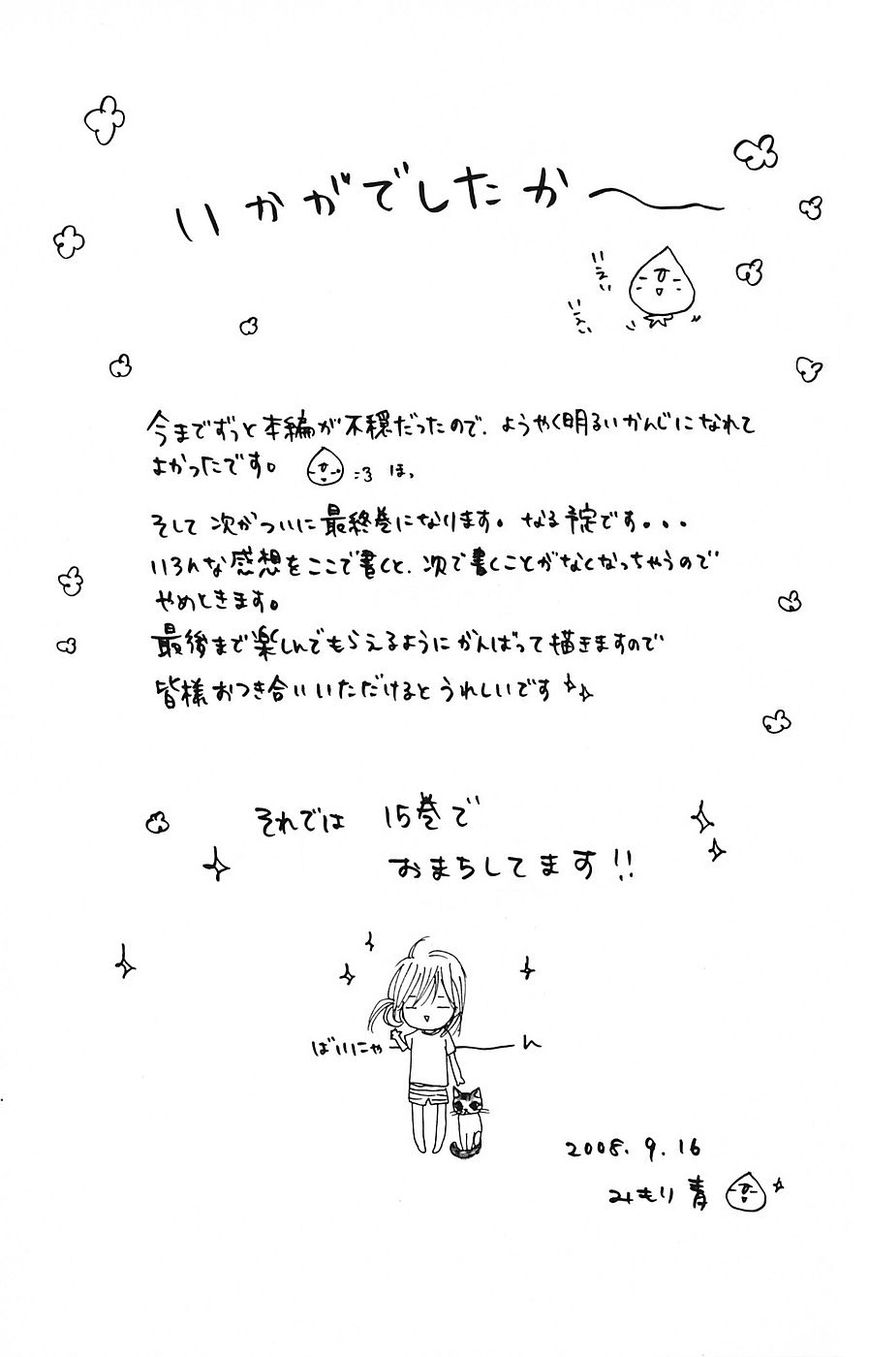 いかがでしたか〜
いえい
いえい
今までずっと本編が不穏だったので、ようやく明るいかんじになれて
よかったです。 ほっ
そして 次がついに最終巻になります。なる予定です。。。
いろんな感想をここで書くと、次で書くことがなくなっちゃうので
やめときます。
最後まで楽しんでもらえるようにがんばって描きますので
皆様おつき合いいただけるとうれしいです
それでは 15巻で
おまちしてます!!
ばいにゃーん
2008.9.16
みもり青